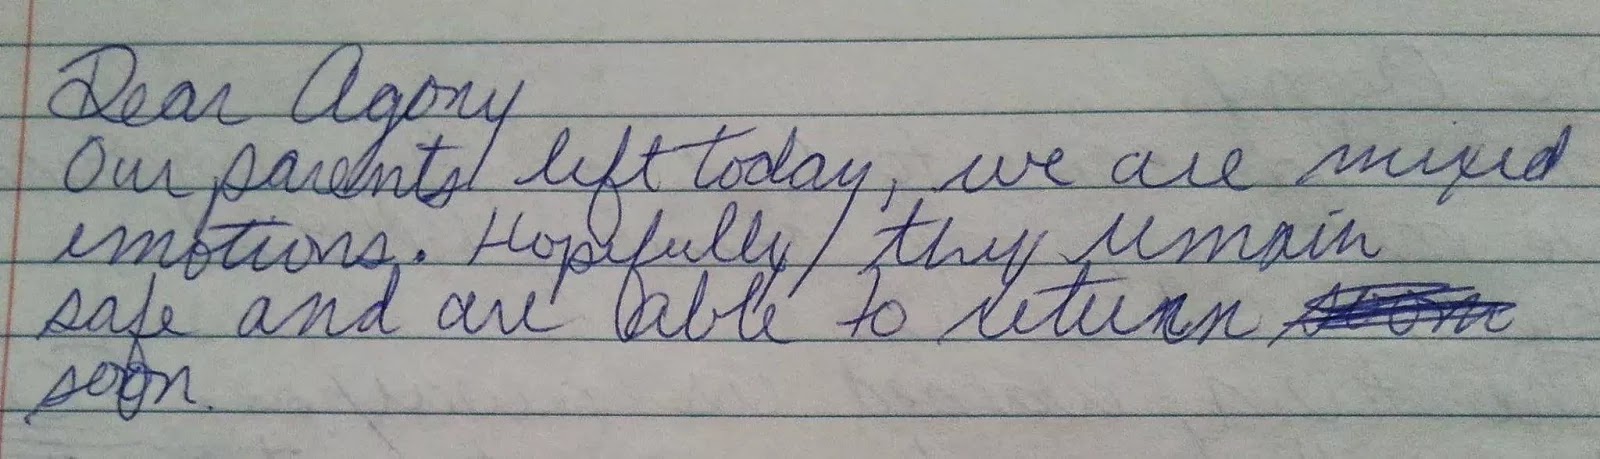 Dear Agony
Our parents left today, we are mixed
emotions. Hopefully they remain
safe and are able to return
soon.